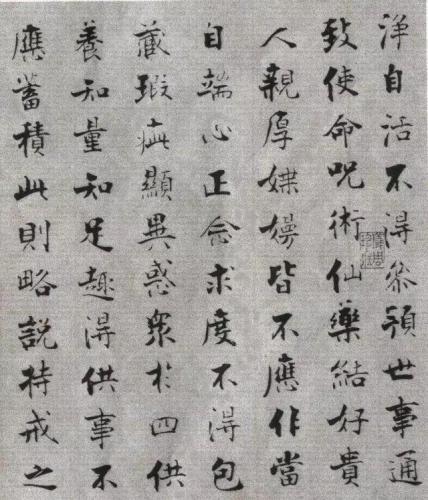 淨自活不得叅預世事通
致使命呪術仙藥結好貴
人親厚媟嫚皆不應作當
自端心正念求度不得包
藏瑕疵顯異惑衆於四供
養知量知足趣得供事不
應蓄積此則略説持戒之